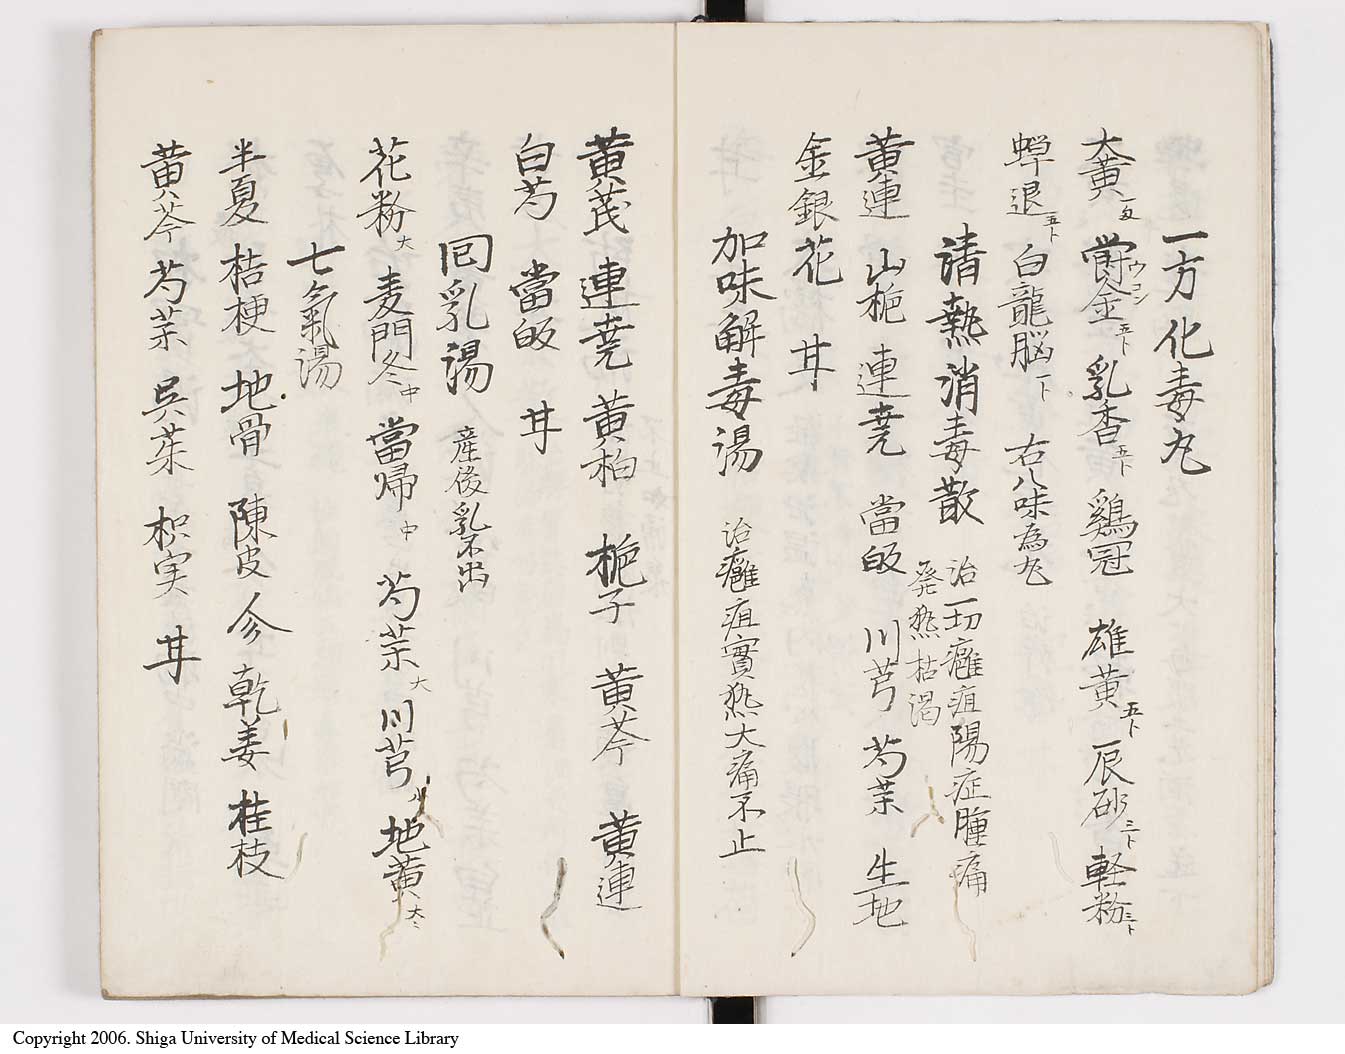 一方化毒丸
大黄 一匁 欝金 ウコン 五卜 乳香 五卜 鷄冠 雄黄 五卜 辰砂 三卜 軽粉 三卜
蝉退 五卜 白龍脳 一卜 右八味為丸
清熱消毒散 治一切癰疽陽症腫痛
発熱枯渇
黄連 山梔 連尭 當皈 川芎 芍茱 生地
金銀花 甘
加味解毒湯 治癰疽實熱大痛不止
黄芪 連尭 黄柏 梔子 黄芩 黄連
白芍 當皈 甘
囘乳湯 産後乳不出
花粉 大 麦門冬 中 當帰 中 芍茱 大 川芎 小 地黄 大
七氣湯
半夏 桔梗 地骨 陳皮 参 乾姜 桂枝
黄芩 芍茱 呉茱 枳実 甘
Copyright 2006. Shiga University of Medical Science Library